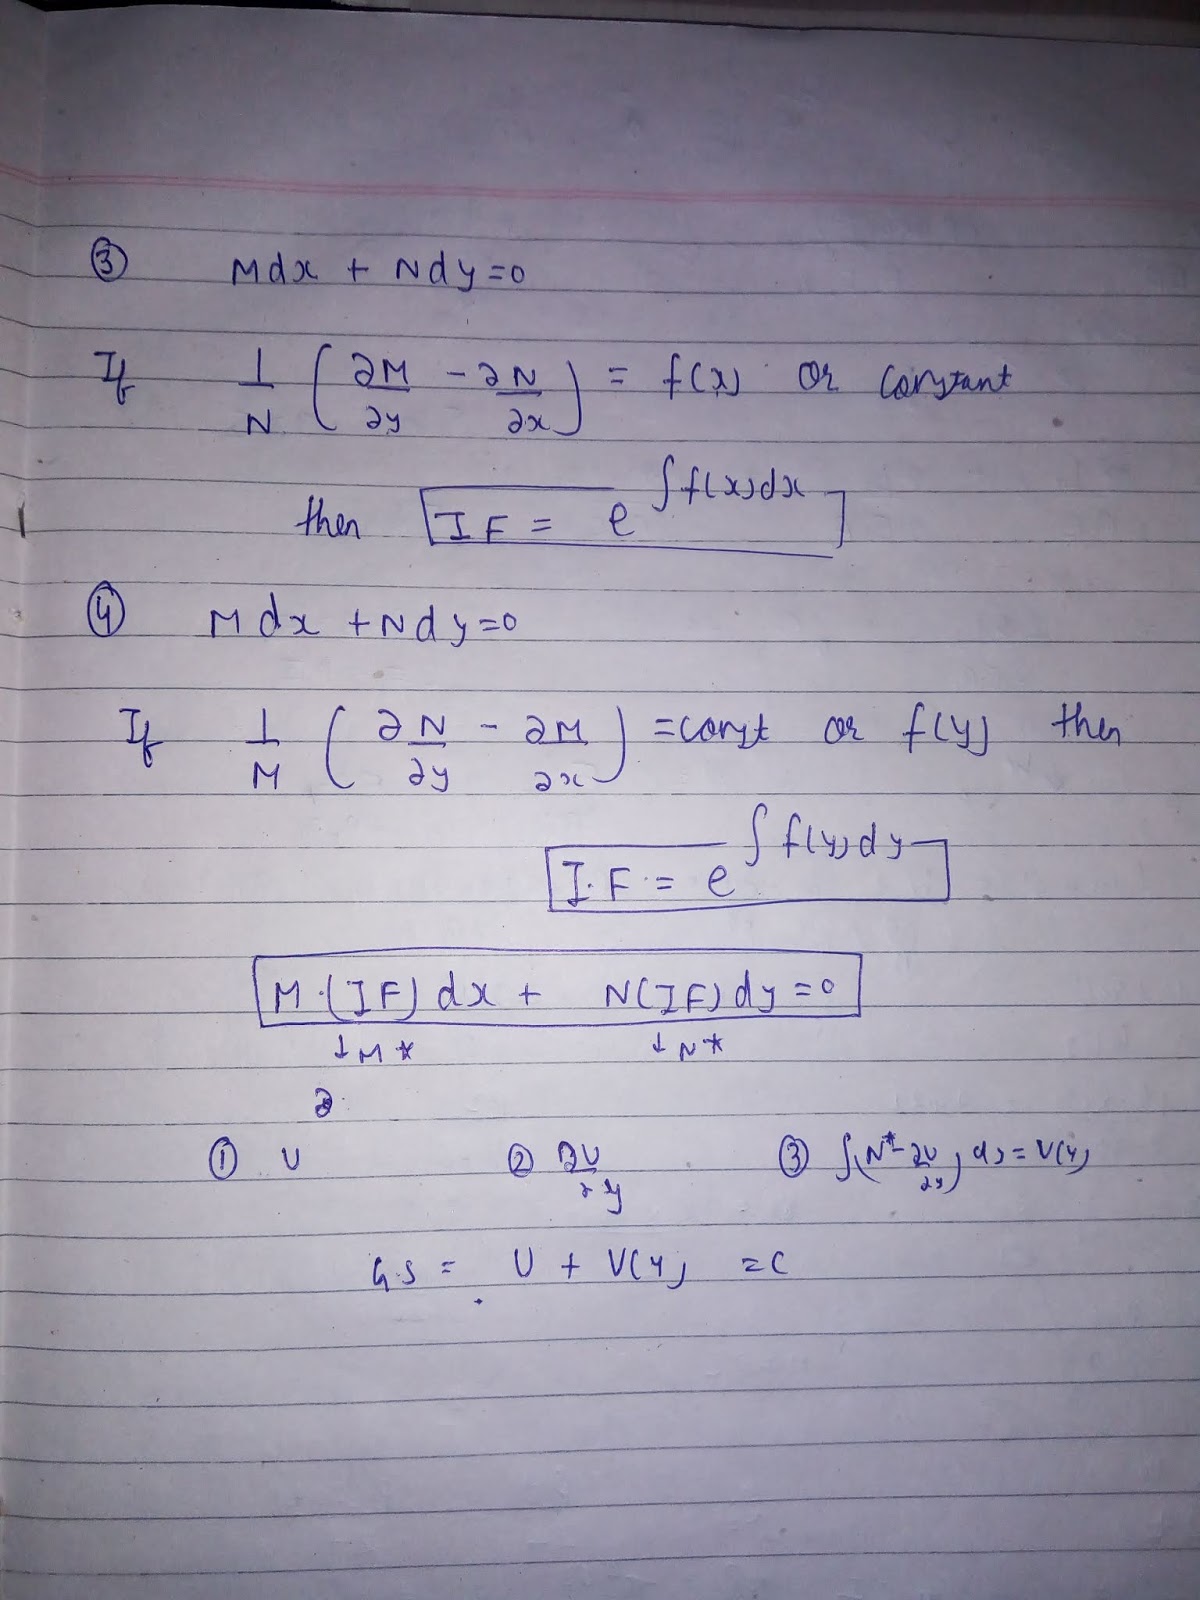 ③ Mdx + Ndy=0
If 1/N (∂M/∂y - ∂N/∂x) = f(x) or constant
then IF = e^∫f(x)dx
④ Mdx + Ndy=0
If 1/M (∂N/∂y - ∂M/∂x) = const or f(y) then
I.F. = e^∫f(y)dy
M.(IF)dx + N(IF)dy=0
↓M* ↓N*
∂
① U ② ∂U/∂y ③ ∫(N*-∂U/∂y)dy=V(y)
G.S = U + V(y) =C